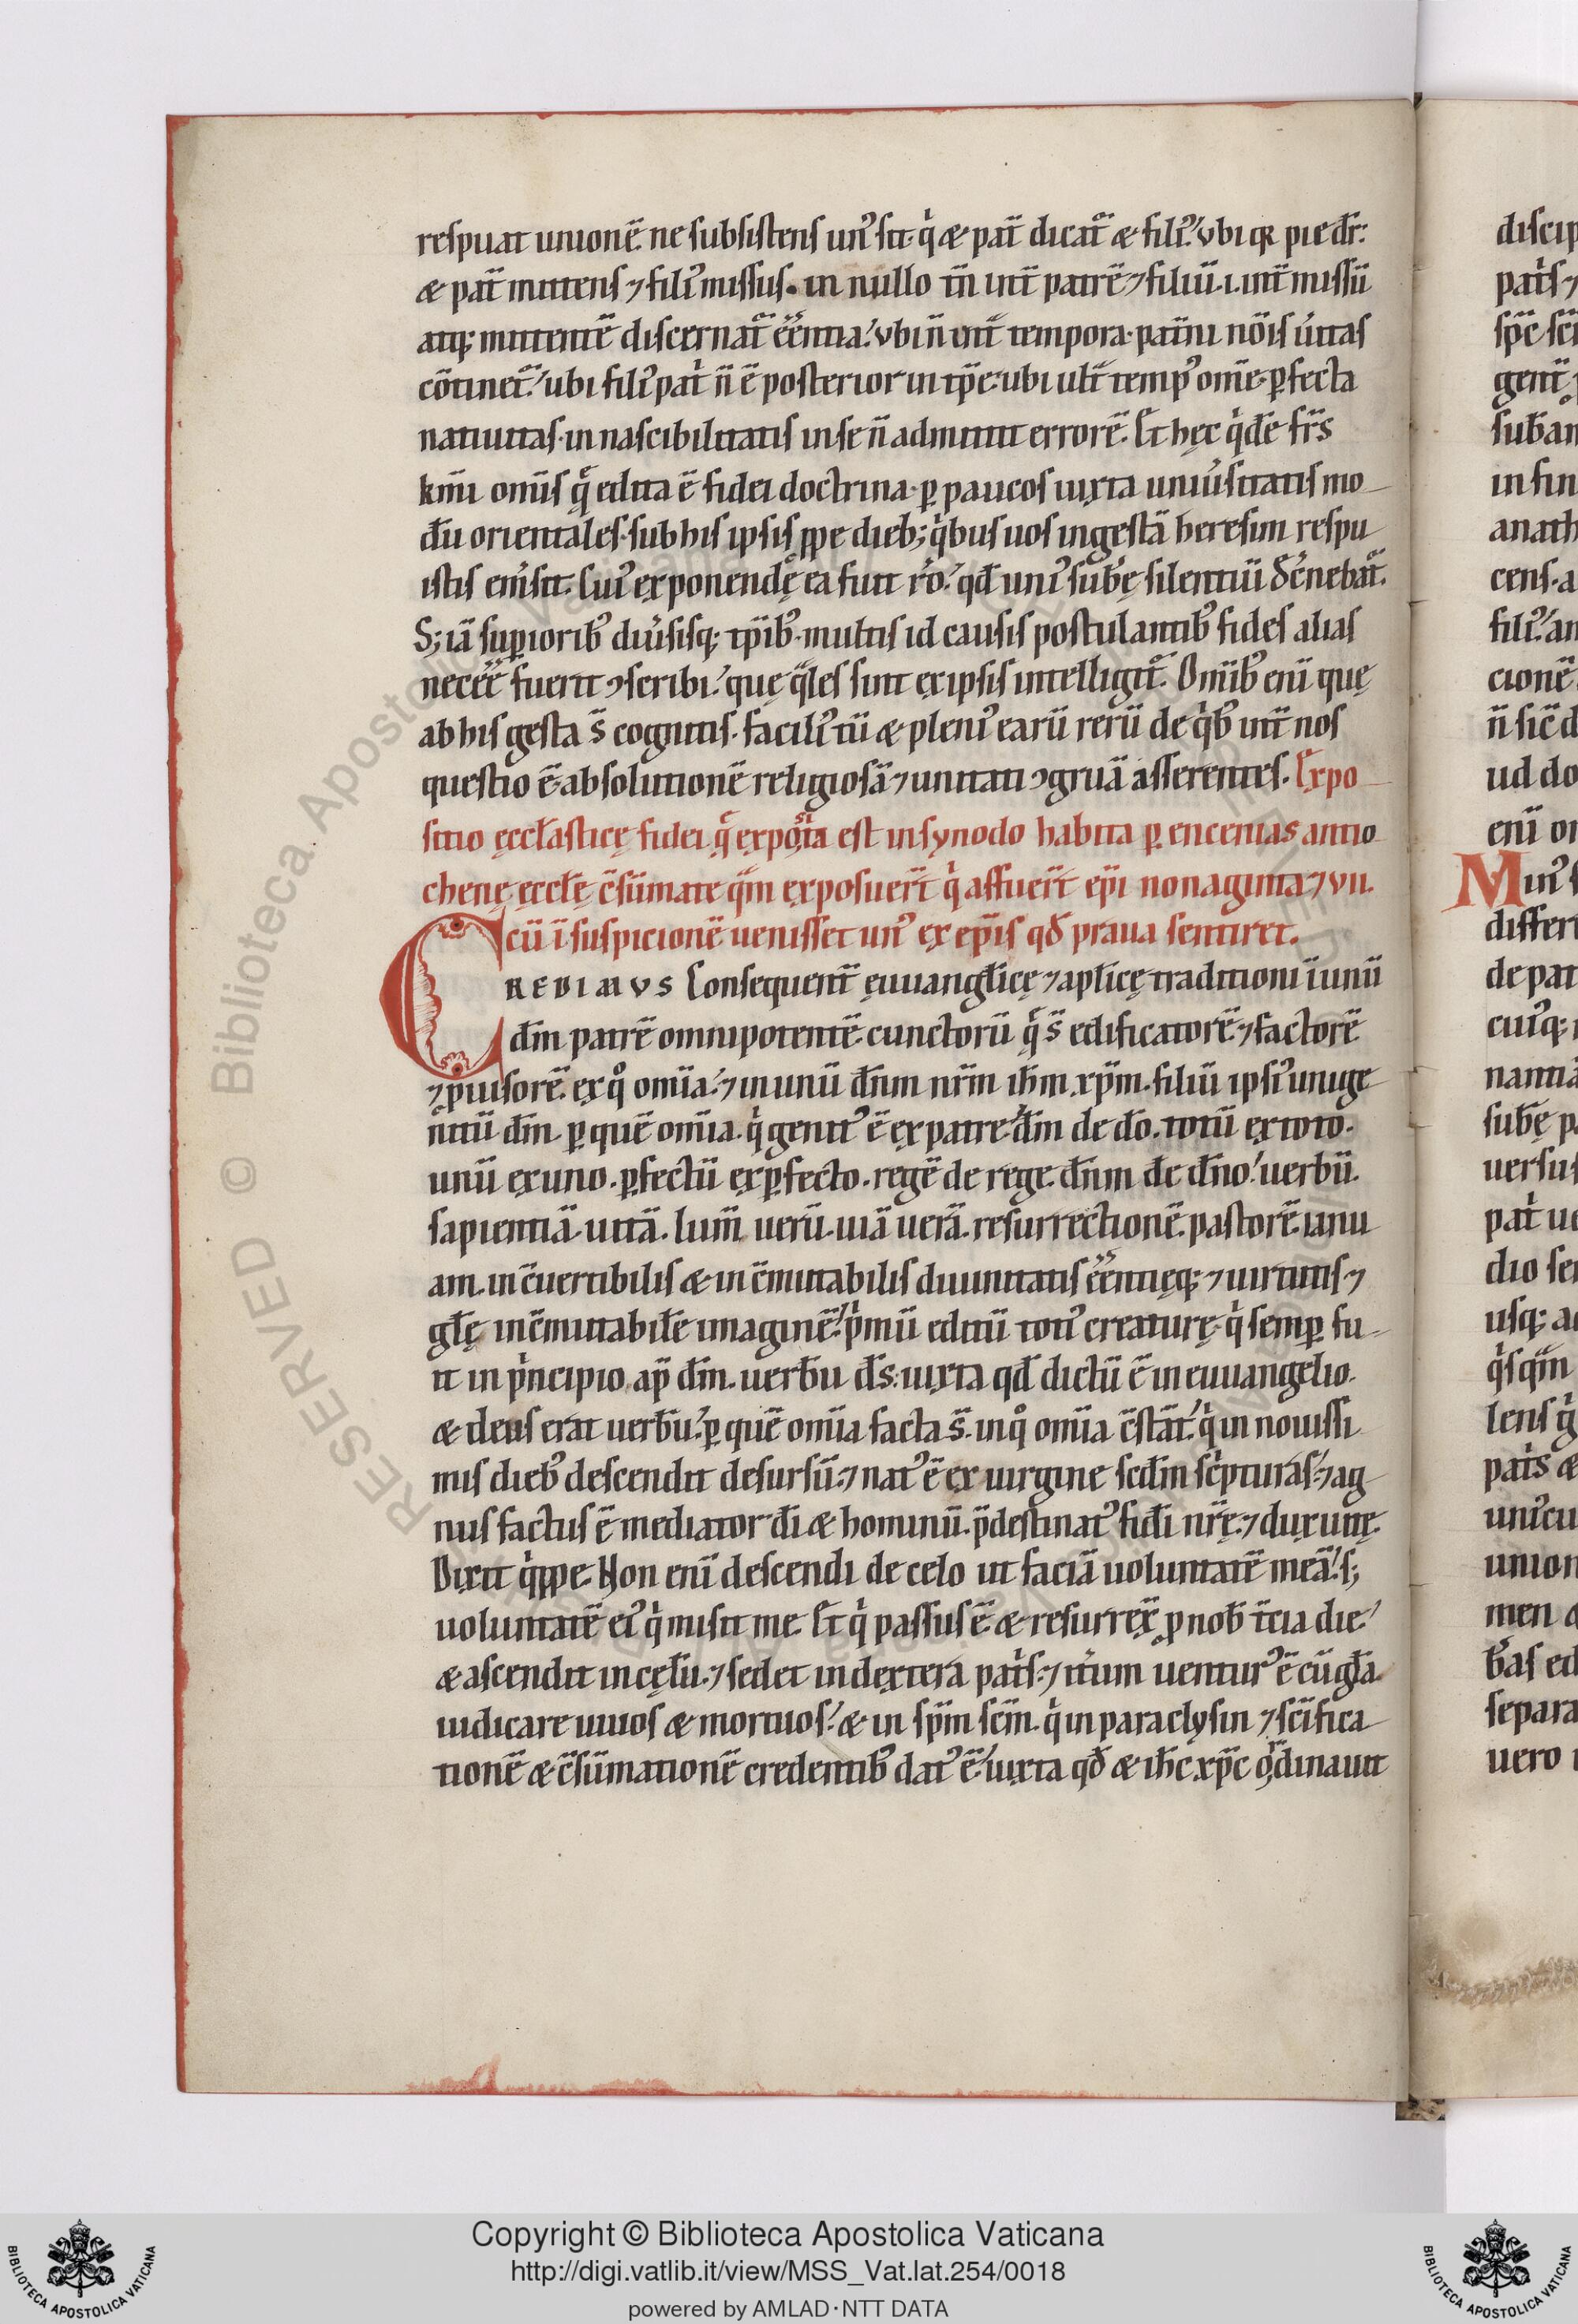 respuat unionē. ne subsistens un᷒ sit. qͥ & pat̄ dicat᷑ & fili᷒.ʼ vbi qꝫ pie dr̄:
& pat̄ mittens ⁊ fili᷒ missus. in nullo tn̄ int̄ patrē ⁊ filiū .i. int̄ missū
atqꝫ mittentē discernat᷑ ēēntia.ʼ vbi n̄ int̄ tempora. pat̄ni nōis ūitas
cōtinet᷑.ʼ ubi fili᷒ pat̓ n̄ ē posterior in tp̄e. ubi ult̄ temp᷒ om̄e. ꝑfecta
natiuitas. innascibilitatis in se n̄ admittit errorē. Et hęc qͥdē fr̄s
km̄i om̄is qͣ edita ē fidei doctrina. ꝑ paucos iuxta uniu̓sitatis mo
dū orientales. sub his ipsis ꝓpe diebꝫ qͥbus uos ingestā heresim respu
istis em̓sit. Cui᷒ exponendę ea fuit r̓o.ʼ qđ uni᷒ sub̄ę silentiū đc̓nebat᷑.
Sꝫ iā suꝑiorib᷒ diu̓sisqꝫ tp̄ib᷒. multis id causis postulantib᷒ fides alias
necēē fuerit ꝯscribi.ʼ quę qͣles sint ex ipsis intelligit᷑. Om̄ib᷒ enī quę
ab his gesta s̄ cognitis. facili᷒ tū & pleni᷒ earū rerū de qͥb᷒ int̄ nos
questio ē. absolutionē religiosā ⁊ unitati ꝯgruā asserentes. Expo
sitio ęccl̄asticę fidei qͣ exposita est in synodo habita ꝑ encenias antio
chenę ęccl̄ę c̄sūmate qͣm exposuer̄t qͥ affuer̄t ep̄i nonaginta ⁊ vii.
cū ī suspicionē uenisset un᷒ ex ep̄is qđ praua sentiret.
CREDIMVS Consequent̄ ęuuangl̄icę ⁊ apl̄icę traditioni ī unū
dm̄ patrē omnipotentē. cunctorū qͣ s̄ edificatorē. ⁊ factorē
⁊ ꝓuisorē. ex qͦ om̄ia.ʼ ⁊ in unū dn̄m nr̄m ih̄m xp̄m. filiū ipsi᷒ unige
nitū dm̄. ꝑ quē om̄ia. qͥ genit᷒ ē ex patre.ʼ dm̄ de dō. totū ex toto.
unū ex uno. ꝑfectū ex ꝑfecto. regē de rege. dn̄m de dn̄o.ʼ uerbū.
sapientiā. uitā. lum̄ uerū. uiā uerā. resurrectionē. pastorē. ianu
am. inc̄uertibilis & inc̄mutabilis diuinitatis ēēntięqꝫ ⁊ uirtutis ⁊
gl̄ę inc̄mutabilē imaginē.ʼ pͥmū editū toti᷒ creaturę. qͥ semꝑ fu
it in pͥncipio ap̄ dm̄. uerb̄u ds̄. iuxta qđ dictū ē in euuangelio.
& deus erat uerb̄u.ʼ ꝑ quē om̄ia facta s̄. in qͦ om̄ia c̄stāt.ʼ qͥ in nouissi
mis dieb᷒ descendit desursū. ⁊ nat᷒ ē ex uirgine scd̄m sc̓pturas.ʼ ⁊ ag
nus factus ē mediator dī & hominū. p̄destinat᷒ fidī nr̄ę. ⁊ dux uitę.
Dixit qͥppe. Non enī descendi de celo ut faciā uoluntatē meā.ʼ sꝫ
uoluntatē ei᷒ qͥ misit me. Et qͥ passus ē. & resurrex̄ ꝓ nob̄ t̄cia die.ʼ
& ascendit in cęlū. ⁊ sedet in dextera pat̓s. ⁊ it̓um uentur᷒ ē cū gl̄a
iudicare uiuos & mortuos.ʼ & in sp̄m sc̄m. qͥ in paraclysin ⁊ sc̄ifica
tionē & c̄sūmationē credentib᷒ dat᷒ ē.ʼ iuxta qđ & ih̄c xp̄c ordinauit
discip
pat̓s ⁊
sp̄c
gent̄
sub̄an
in fin
anath
cens. a
fili᷒.ʼ an
cionē
n̄ sic̄ d
ud do
enī
Min᷒
differt
de pat
cui᷒qꝫ
nantiā
sub̄ę
uersus
pat̓ ue
dio se
usqꝫ ad
qͥsqͣm
lens
pat̓s &
uni᷒cu
union
men
b᷒as ed
separa
uero
RESERVED © Biblioteca Apostolica Vaticana
Copyright © Biblioteca Apostolica Vaticana
http://digi.vatlib.it/view/MSS_Vat.lat.254/0018
powered by AMLAD·NTT DATA
BIBLIOTECA APOSTOLICA VATICANA
BIBLIOTECA APOSTOLICA VATICANA